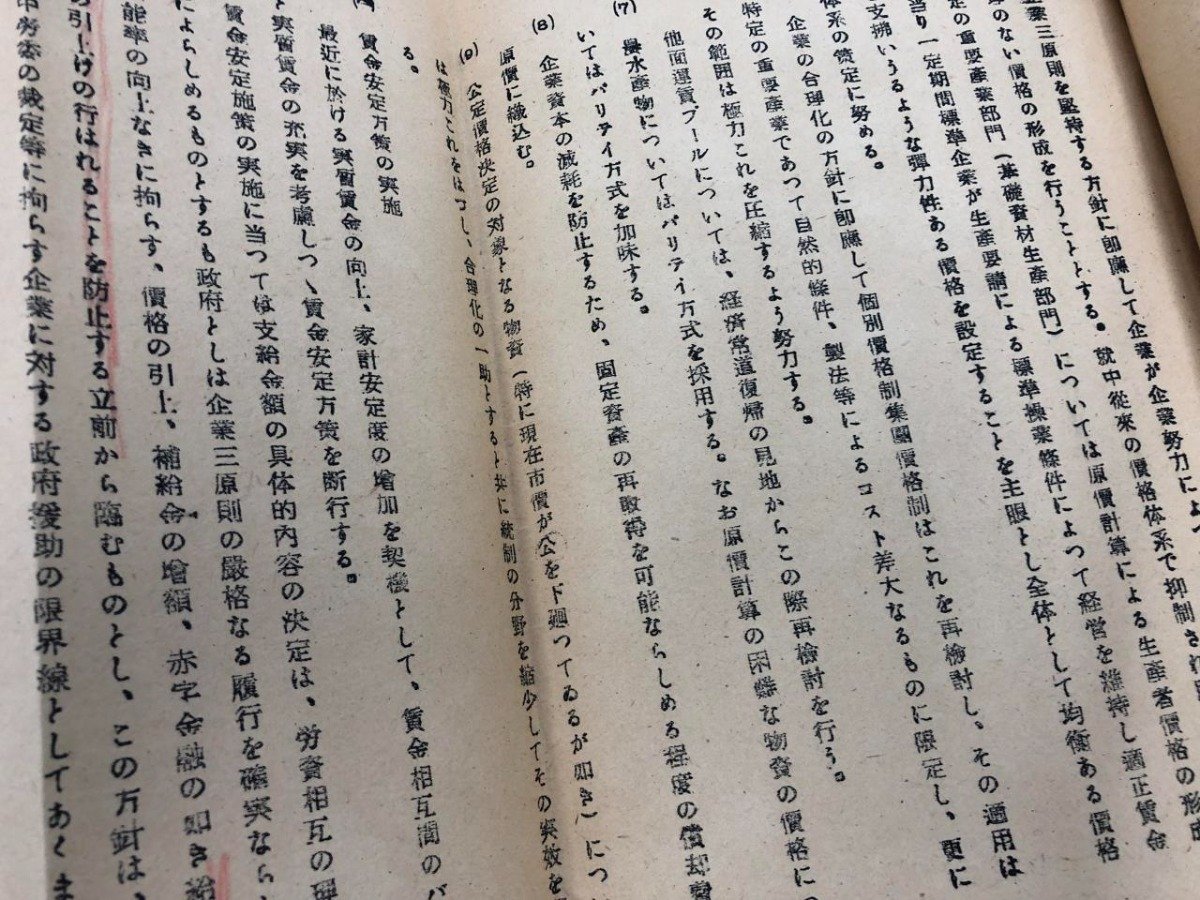 企業三原則を堅持する方針に即應して企業が企業努力によ
のない價格の形成を行うこととする。就中從来の價格体系で抑制され
定の重要産業部門(基礎資材生産部門)については原價計算による生産者價格の形成
当り一定期間標準企業が生産要請による標準操業條件によつて経営を維持し適正賃金
支拂いうるような彈力性ある價格を設定することを主眼とし全体として均衡ある價格
体系の策定に努める。
企業の合理化の方針に即應して個別價格制集團價格制はこれを再検討し、その適用は
特定の重要産業であつて自然的條件、製法等によるコスト差大なるものに限定し、更に
その範囲は極力これを圧縮するよう努力する。
他面運賃プールについては、経済常道復帰の見地からこの際再検討を行う。
(7) 農水産物についてはパリティ方式を採用する。なお原價計算の困難な物資の價格につ
いてはパリテイ方式を加味する。
(8) 企業資本の減耗を防止するため、固定資産の再取得を可能ならしめる程度の償却費
原價に織込む。
(9) 公定價格決定の対象となる物資(特に現在市價が公を下廻つてゐるが如き)につ
は極力これをはづし、合理化の一助とすると共に統制の分野を縮少してその実效を
る。
賃金安定方策の実施
最近に於ける実質賃金の向上、家計安定度の増加を契機として、賃金相互間のバ
と実質賃金の充実を考慮しつゝ賃金安定方策を断行する。
賃金安定施策の実施に当つては支給金額の具体的内容の決定は、労資相互の
によらしめるものとするも政府としは企業三原則の嚴格なる履行を確実なら
能率の向上なきに拘らず、價格の引上、補給金の増額、赤字金融の如き
の引上げの行はれることを防止する立前から臨むものとし、この方針は、
中労委の裁定等に拘らず企業に対する政府援助の限界線としてあくま